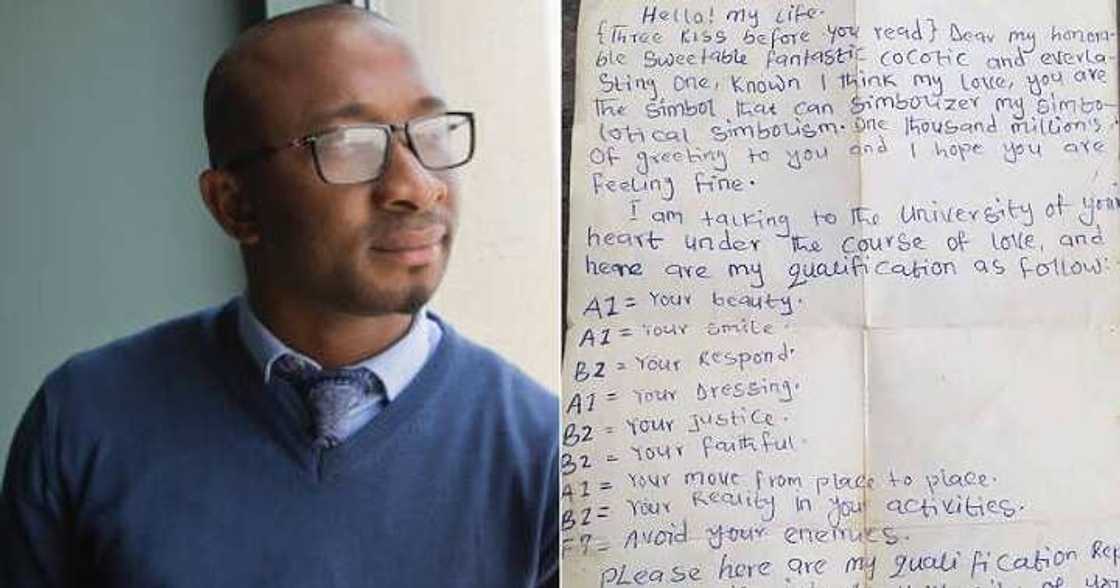 Hello! my Life.
{Three kiss before you read} Dear my honora-
ble sweetable fantastic cocotic and everla-
sting one, known I think my love, you are
The simbol that can simbolizer my simbo-
lotical simbolism. One thousand million's
Of greeting to you and I hope you are
feeling fine.
I am talking to the University of your
heart under the course of love, and
heare are my qualification as follow:
A1 = Your beauty.
A1 = Your smile.
B2 = Your Respond.
A1 = Your Dressing.
B2 = Your Justice.
B2 = Your faithful.
A1 = Your move from place to place.
B2 = Your Reality in your activities.
F7 = Avoid your enemies.
Please here are my qualification